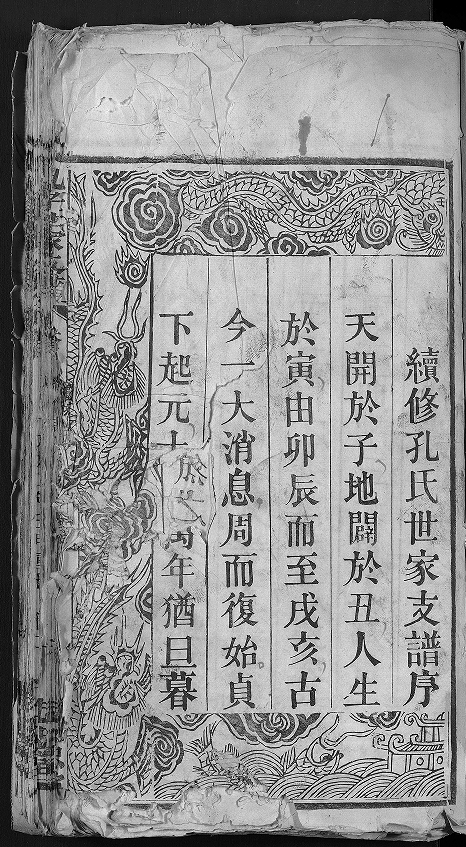 續修孔氏世家支譜序
天開於子地闢於丑人生
於寅由卯辰而至戌亥古
今一大消息周而復始貞
下起元十年猶旦暮